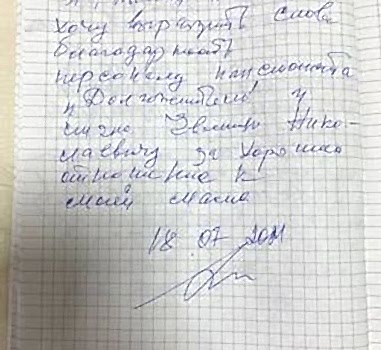 хочу выразить слова
благодарност
персоналу пансионата
"Долгожители" и
лично Николаевичу за хорошее
отношение к
моей маме
18 07 2021